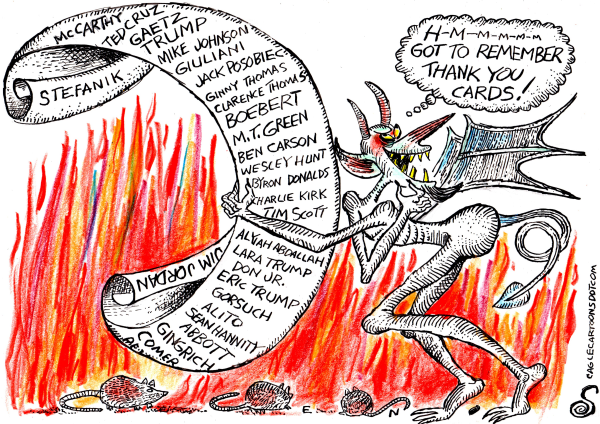 McCARTHY
TED CRUZ
GAETZ
TRUMP
MIKE JOHNSON
GIULIANI
STEFANIK
JACK POSOBIEC
GINNY THOMAS
CLARENCE THOMAS
BOEBERT
M.T. GREEN
BEN CARSON
WESLEY HUNT
BYRON DONALDS
CHARLIE KIRK
TIM SCOTT
ALVAH ABDALLAH
LARA TRUMP
DON JR.
ERIC TRUMP
GORSUCH
ALITO
SEAN HANNITY
ABBOTT
GINGRICH
COMER
JIM JORDAN
H-M-M-M-M-M
GOT TO REMEMBER
THANK YOU
CARDS!
EAGLECARTOONSDOTCOM